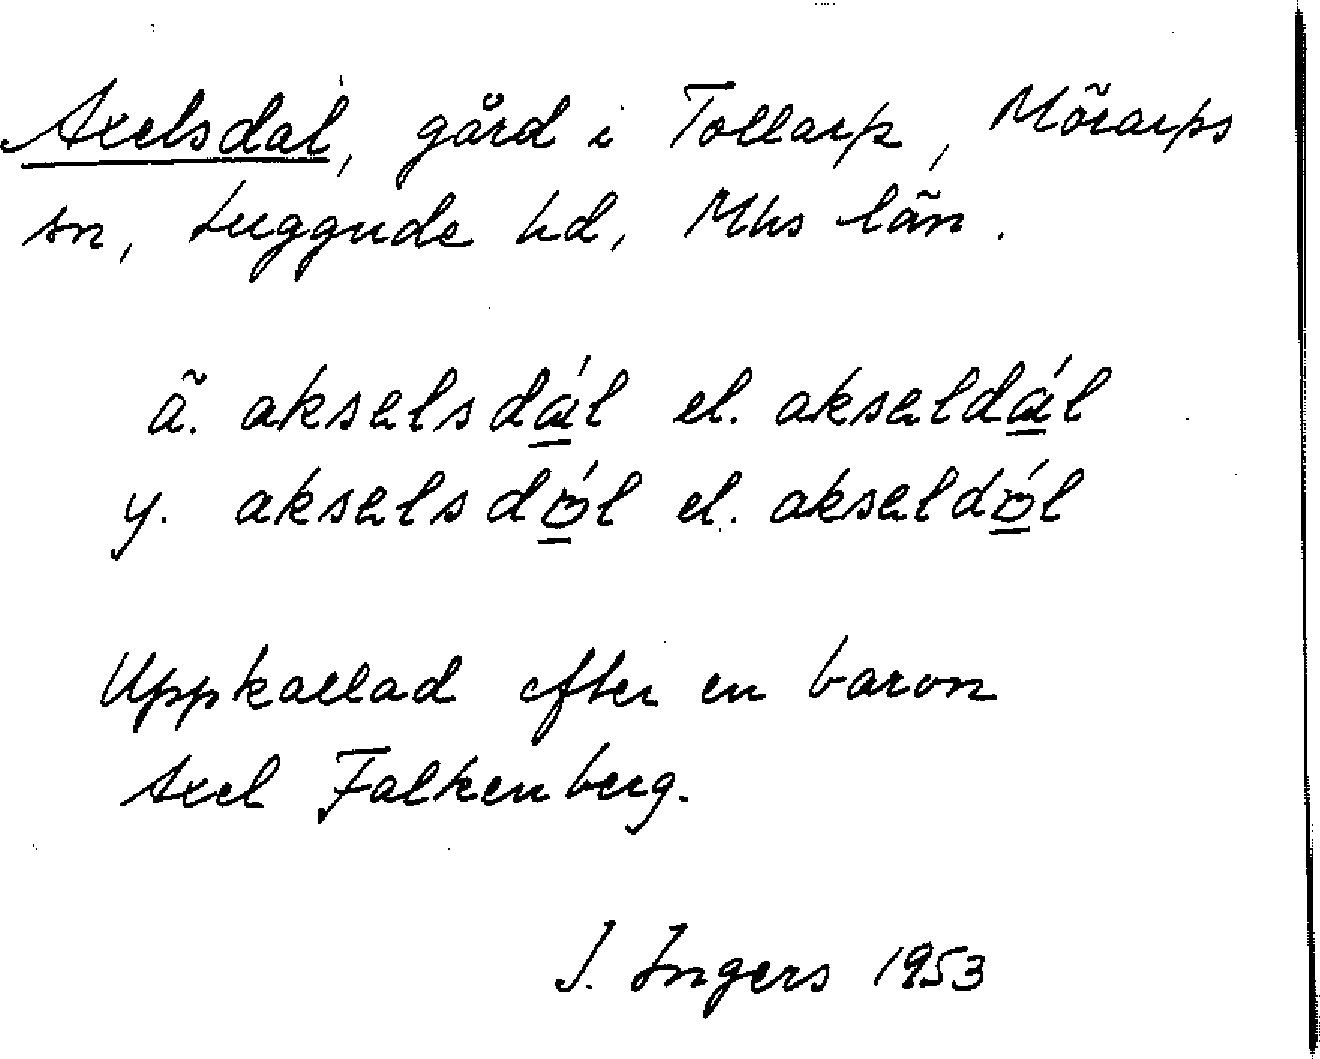 Axelsdal, gård i Tollarp, Mörarps
sn, Luggude hd, Mhs län.
ä. aksəlsdál el. aksəldál
y. aksəlsdɔ́l el. aksəldɔ́l
Uppkallad efter en baron
Axel Falkenberg.
I. Ingers 1953